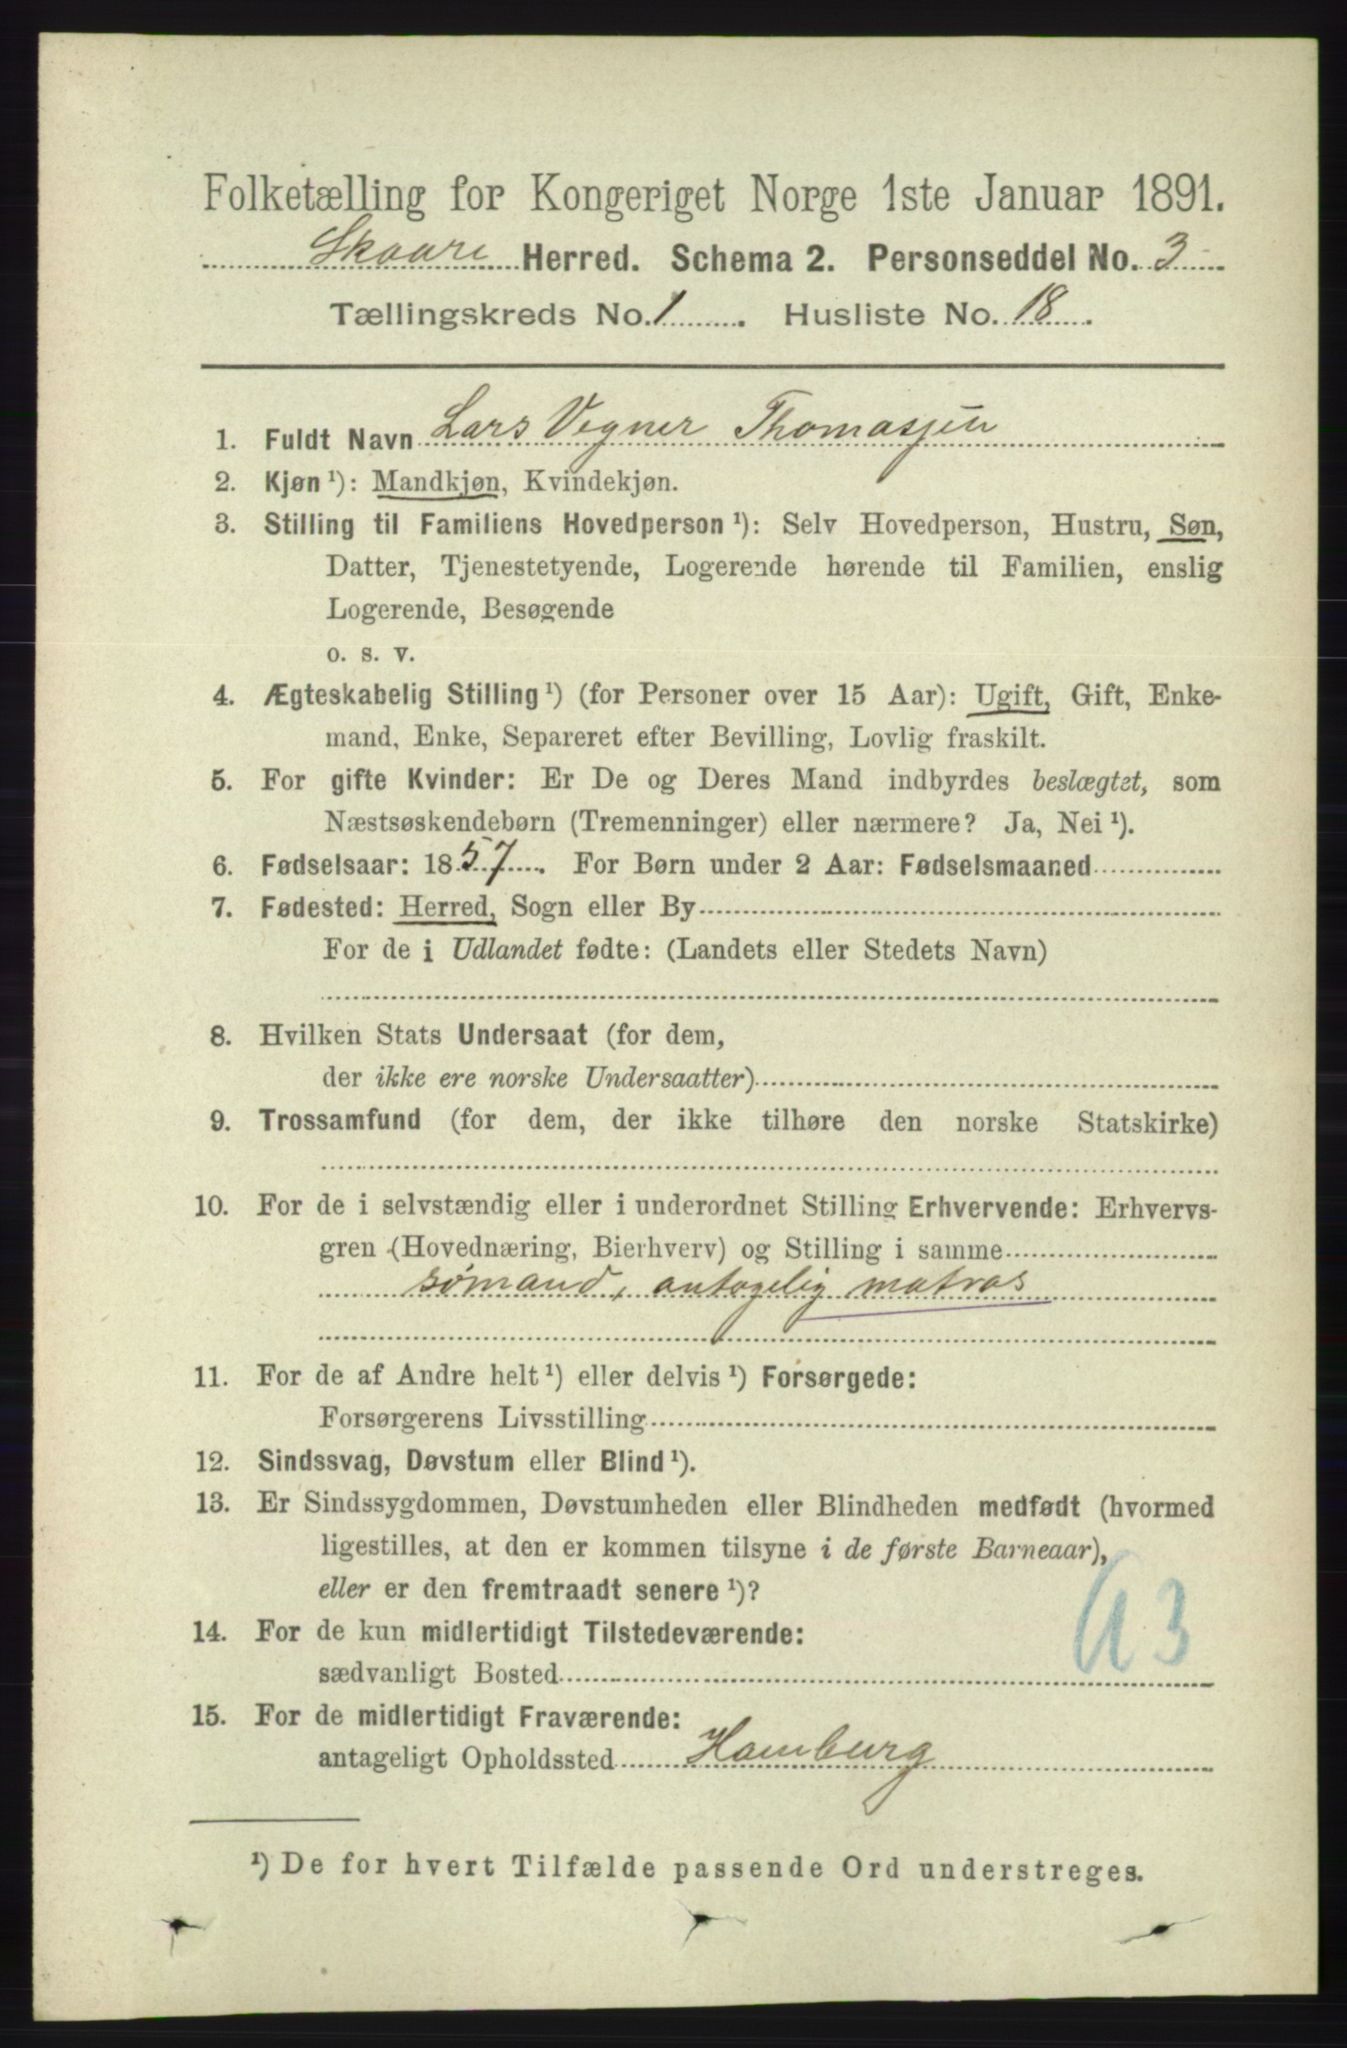 Folketælling for Kongeriget Norge 1ste Januar 1891.
Skaare Herred. Schema 2. Personseddel No. 3
Tællingskreds No. 1. Husliste No. 18.
1. Fuldt Navn Lars Vegner Thomasjen
2. Kjøn ¹): Mandkjøn, Kvindekjøn.
3. Stilling til Familiens Hovedperson ¹): Selv Hovedperson, Hustru, Søn,
Datter, Tjenestetyende, Logerende hørende til Familien, enslig
Logerende, Besøgende
o. s. v.
4. Ægteskabelig Stilling ¹) (for Personer over 15 Aar): Ugift, Gift, Enke-
mand, Enke, Separeret efter Bevilling, Lovlig fraskilt.
5. For gifte Kvinder: Er De og Deres Mand indbyrdes beslægtet, som
Næstsøskendebørn (Tremenninger) eller nærmere? Ja, Nei ¹).
6. Fødselsaar: 1857. For Børn under 2 Aar: Fødselsmaaned
7. Fødested: Herred, Sogn eller By
For de i Udlandet fødte: (Landets eller Stedets Navn)
8. Hvilken Stats Undersaat (for dem,
der ikke ere norske Undersaatter)
9. Trossamfund (for dem, der ikke tilhøre den norske Statskirke)
10. For de i selvstændig eller i underordnet Stilling Erhvervende: Erhvervs-
gren (Hovednæring, Bierhverv) og Stilling i samme
sømand, antagelig matros
11. For de af Andre helt ¹) eller delvis ¹) Forsørgede:
Forsørgerens Livsstilling
12. Sindssvag, Døvstum eller Blind ¹).
13. Er Sindssygdommen, Døvstumheden eller Blindheden medfødt (hvormed
ligestilles, at den er kommen tilsyne i de første Barneaar),
eller er den fremtraadt senere ¹)?
14. For de kun midlertidigt Tilstedeværende:
sædvanligt Bosted
15. For de midlertidigt Fraværende:
antageligt Opholdssted Hamburg
¹) De for hvert Tilfælde passende Ord understreges.